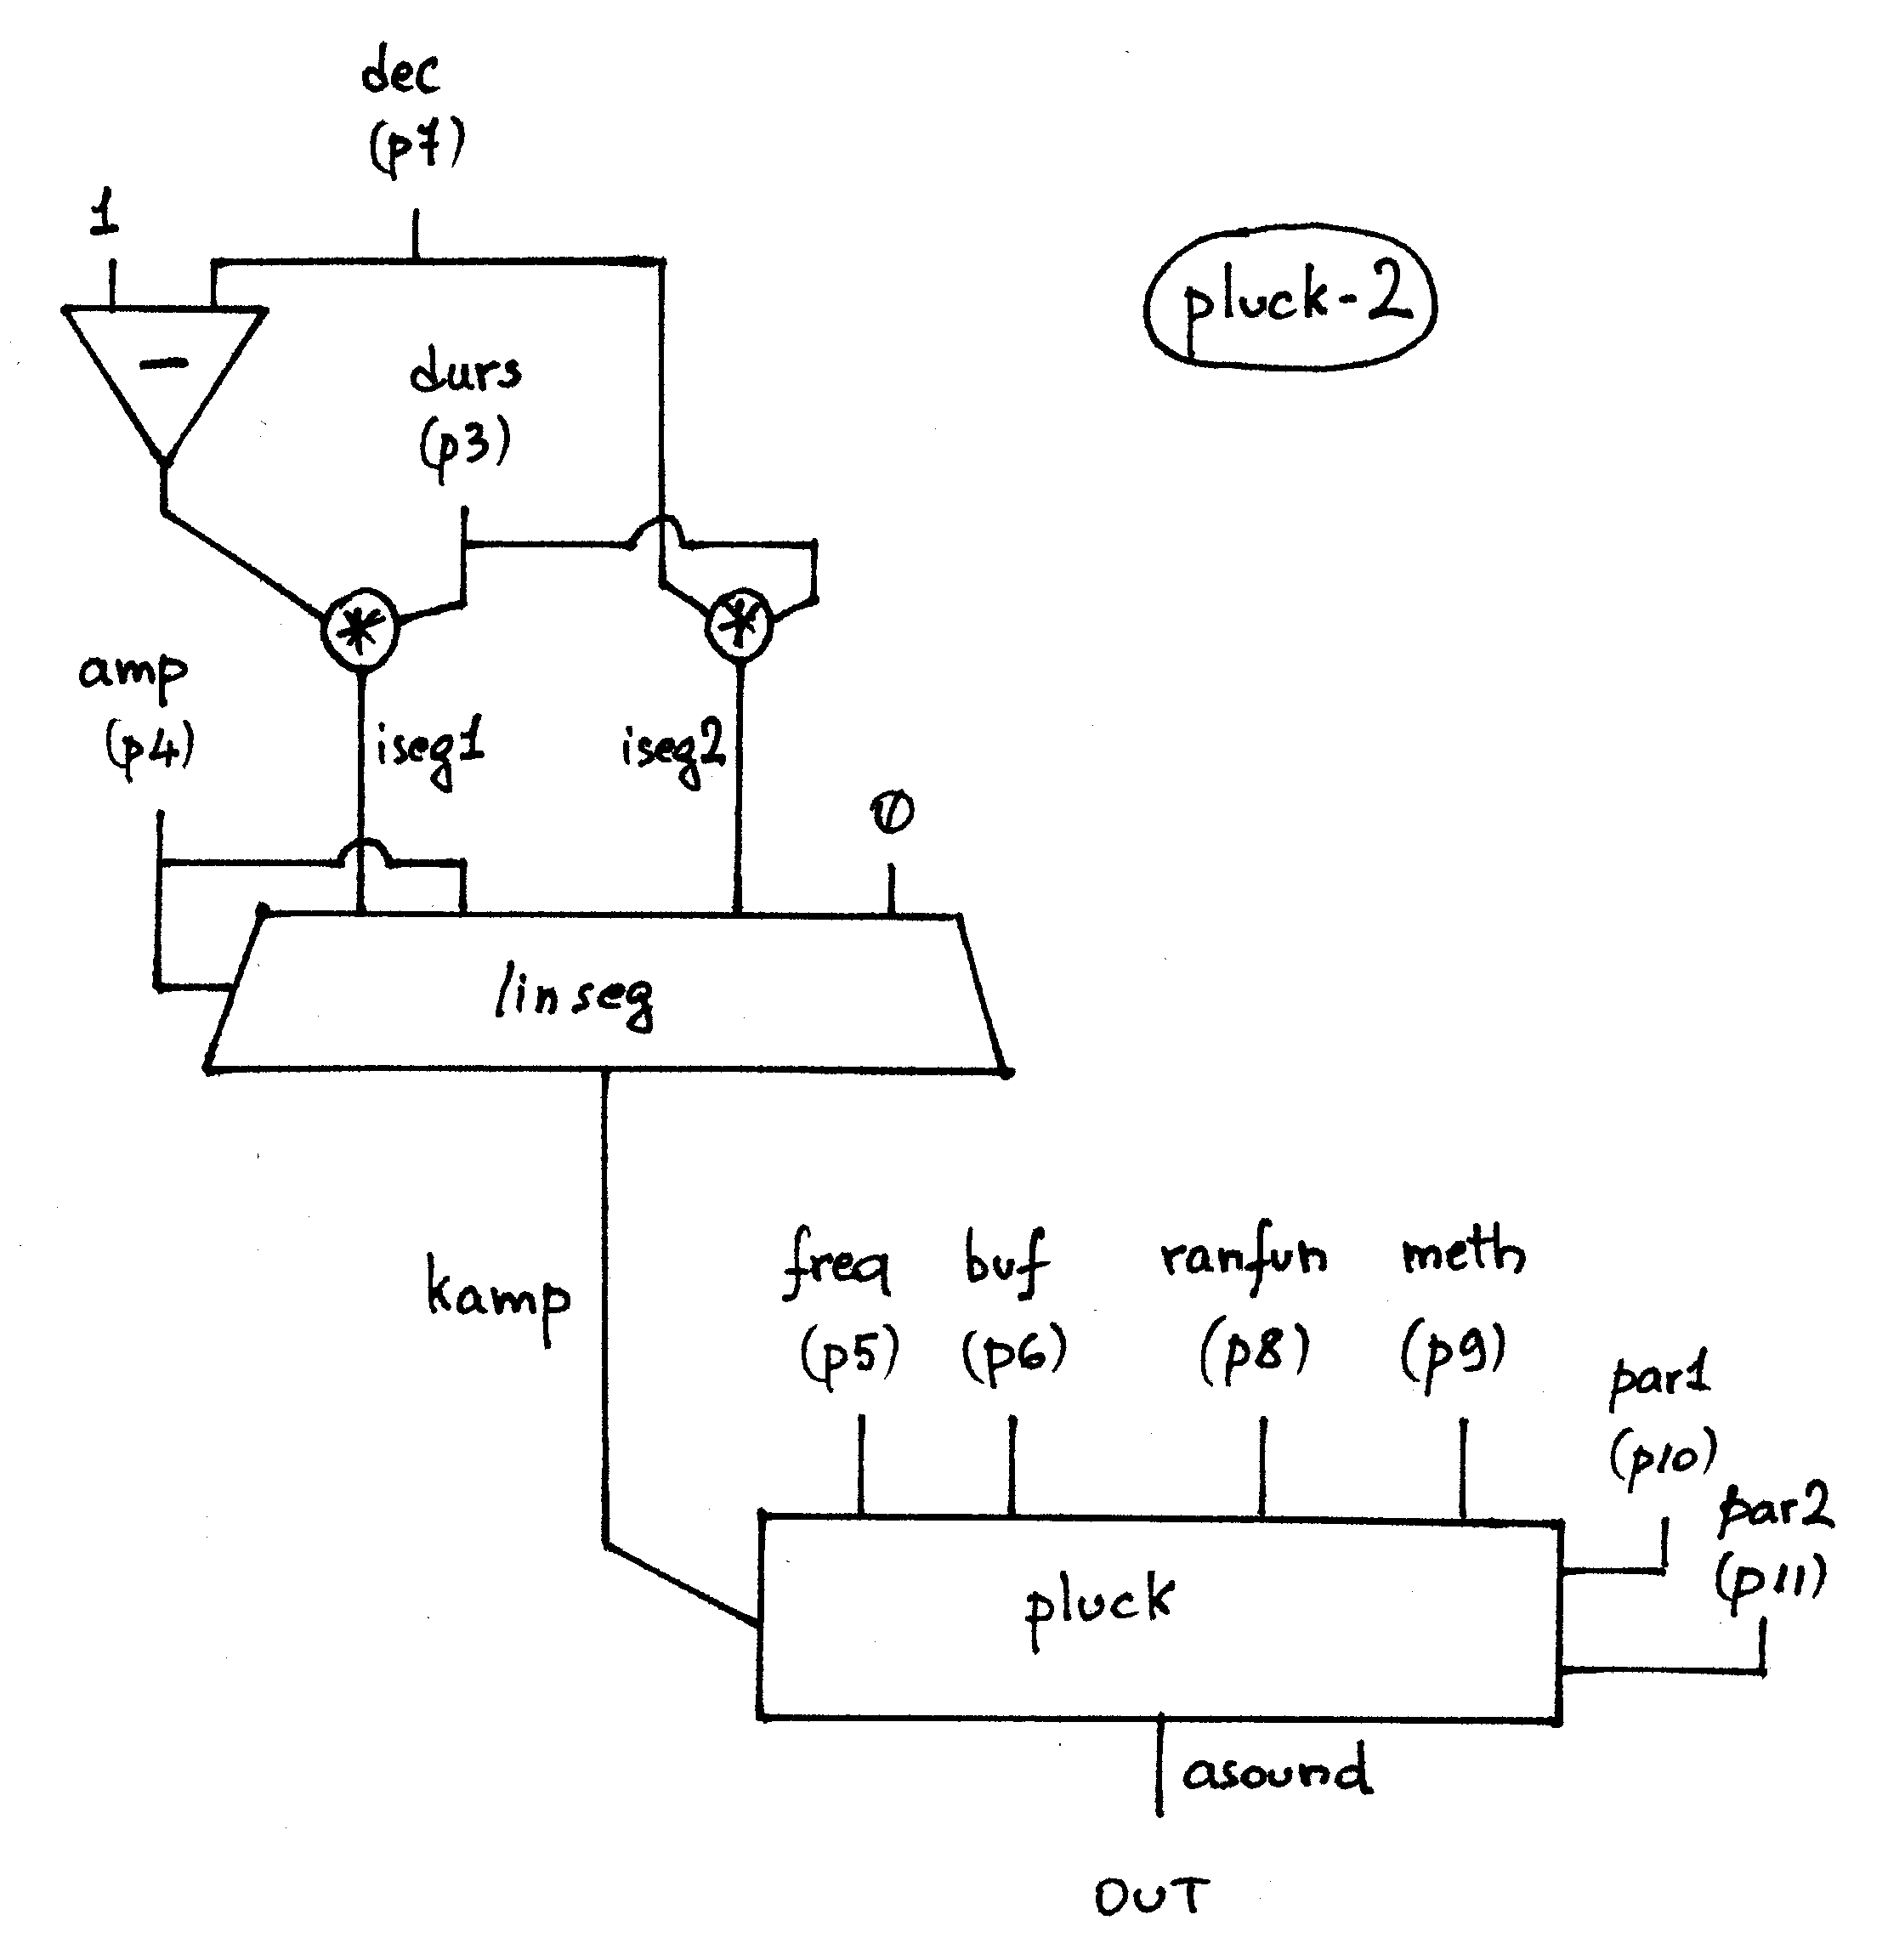 dec
(p7)
1
pluck-2
-
durs
(p3)
*
*
amp
(p4)
iseg1
iseg2
0
linseg
kamp
freq
(p5)
buf
(p6)
ranfun
(p8)
meth
(p9)
par1
(p10)
par2
(p11)
pluck
asound
OUT